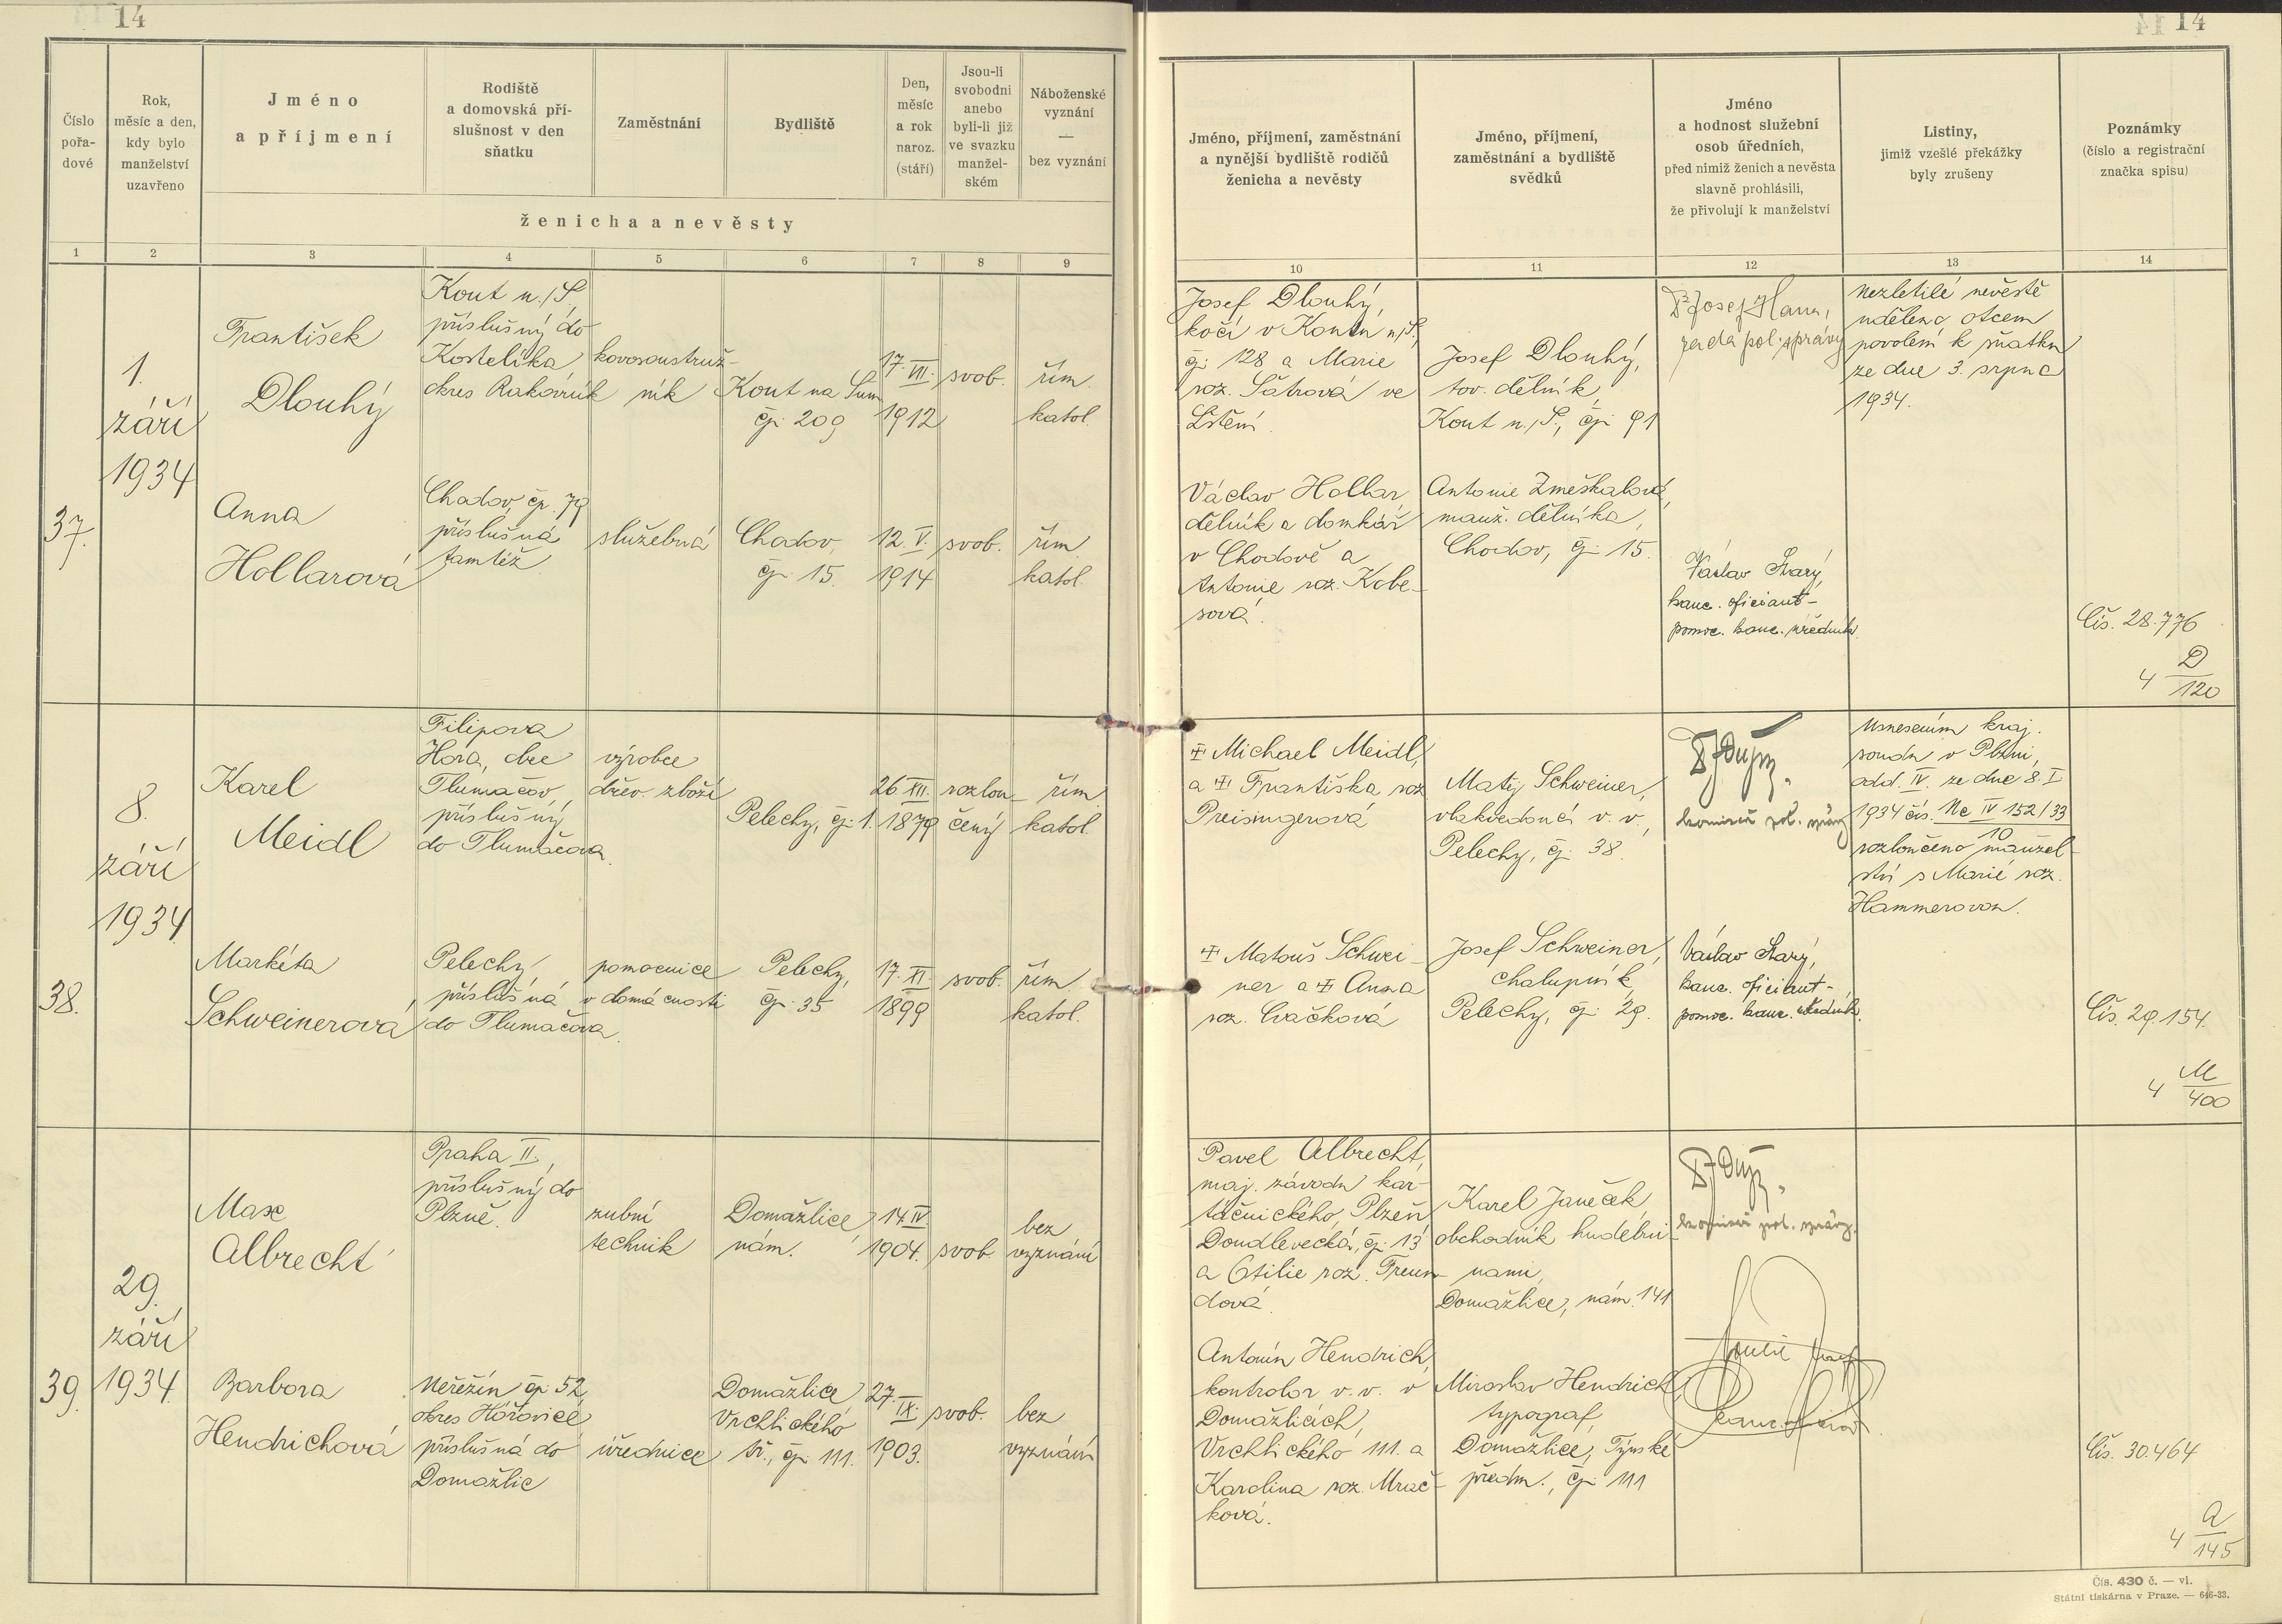 14
Číslo pořa-dové
Rok, měsíc a den, kdy bylo manželství uzavřeno
Jméno a příjmení
Rodiště a domovská pří-slušnost v den sňatku
Zaměstnání
Bydliště
Den, měsíc a rok naroz. (stáří)
Jsou-li svobodni anebo byli-li již ve svazku manžel-ském
Náboženské vyznání — bez vyznání
ženicha a nevěsty
1 2 3 4 5 6 7 8 9
37.
1.
září
1934
František
Dlouhý
Kout n./Š.
příslušný do
Kostelíka,
okres Rakovník
kovosoustruž-
ník
Kout na Šum
čp. 209
17. VII.
1912
svob.
řím.
katol.
Anna
Hollarová
Chodov, čp. 79
příslušná
tamtéž
služebná
Chodov,
čp. 15.
12. V.
1914
svob.
řím.
katol.
38.
8.
září
1934
Karel
Meidl
Filipova
Hora, obec
Tlumačov,
příslušný
do Tlumačova
výrobce
dřev. zboží
Pelechy, čp. 1.
26. XII.
1879
rozlou-
čený
řím.
katol.
Markéta
Schweinerová
Pelechy,
příslušná
do Tlumačova.
pomocnice
v domácnosti
Pelechy,
čp. 35
17. XI.
1899
svob.
řím.
katol.
39.
29.
září
1934
Max
Albrecht
Praha II.,
příslušný do
Plzně.
zubní
technik
Domažlice,
nám.
14. IV.
1904.
svob.
bez
vyznání
Barbora
Hendrichová
Neřežín čp. 52,
okres Hořovice
příslušná do
Domažlic
úřednice
Domažlice,
Vrchlického
tř., čp. 111.
27.
IX.
1903.
svob.
bez
vyznání
14
Jméno, příjmení, zaměstnání a nynější bydliště rodičů ženicha a nevěsty
Jméno, příjmení, zaměstnání a bydliště svědků
Jméno a hodnost služební osob úředních, před nimiž ženich a nevěsta slavně prohlásili, že přivolují k manželství
Listiny, jimiž vzešlé překážky byly zrušeny
Poznámky (číslo a registrační značka spisu)
10 11 12 13 14
Josef Dlouhý,
kočí v Koutu n/Š.,
čp. 128 a Marie
roz. Šátrová ve
Lštění.
Josef Dlouhý,
tov. dělník,
Kout n./Š., čp. 91
rada pol. správy
Nezletilé nevěstě
uděleno otcem
povolení k sňatku
ze dne 3. srpna
1934.
Václav Hollar,
dělník a domkář
v Chodově a
Antonie roz. Kobe-
sová.
Antonie Zmeškalová,
manž. dělníka,
Chodov, čp. 15.
Václav Starý,
kanc. oficiant-
pomoc. kanc. úředník
Čís. 28.776
4 D/120
Michael Meidl,
a Františka roz.
Preisingerová
Matěj Schweiner,
vlakvedoucí v. v.,
Pelechy, čp. 38.
komisař pol. správy
Usnesením kraj.
soudu v Plzni,
odd. IV. ze dne 8. I.
1934 čís. Nc IV 152/33
10
rozloučeno manžel-
ství s Marií roz.
Hammerovou.
Matouš Schwei-
ner a Anna
roz. Cvačková
Josef Schweiner,
chalupník,
Pelechy, čp. 29.
Václav Starý,
kanc. oficiant-
pomoc. kanc. úředník.
Čís. 29.154.
4 M/400
Pavel Albrecht,
maj. závodu kar-
táčnického, Plzeň
Doudlevecká, čp. 13
a Otilie roz. Freun-
dová.
Karel Janeček,
obchodník hudebni-
nami,
Domažlice, nám. 141
komisař pol. správy.
Antonín Hendrich,
kontrolor v. v. v
Domažlicích,
Vrchlického 111. a
Karolina roz. Mrač-
ková.
Miroslav Hendrich,
typograf,
Domažlice, Týnské
předm., čp. 111
Čís. 30.464
4 A/145
Čís. 430 č. — vl.
Státní tiskárna v Praze. — 646-33.